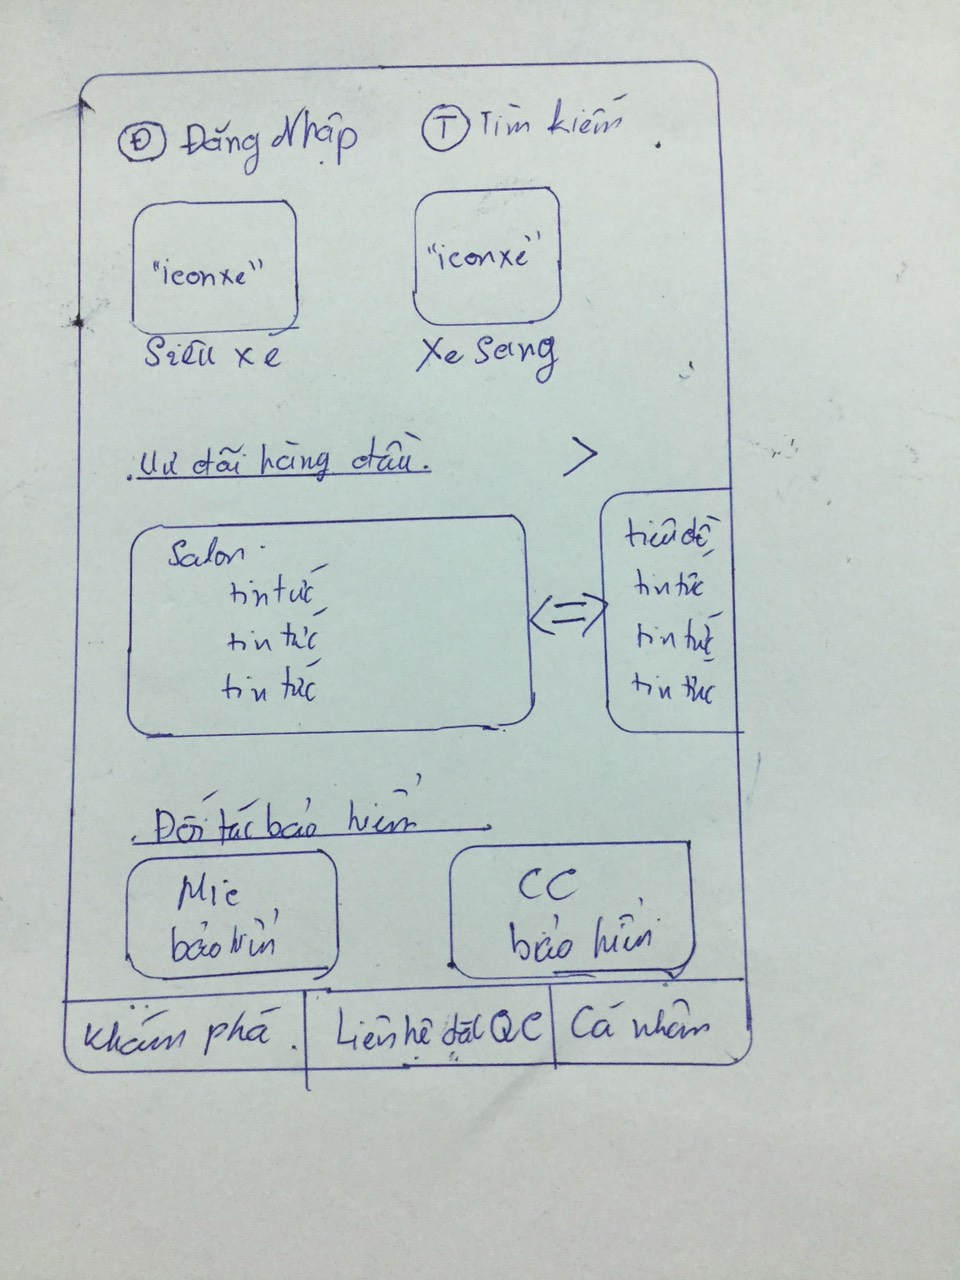 Đ Đăng Nhập
T Tìm kiếm
"icon xe"
"icon xe"
Siêu xe
Xe Sang
Ưu đãi hàng đầu.
>
Salon
tin tức
tin tức
tin tức
tiêu đề
tin tức
tin tức
tin tức
Đối tác bảo hiểm
Mic
bảo hiểm
CC
bảo hiểm
Khám phá
Liên hệ đặt QC
Cá nhân